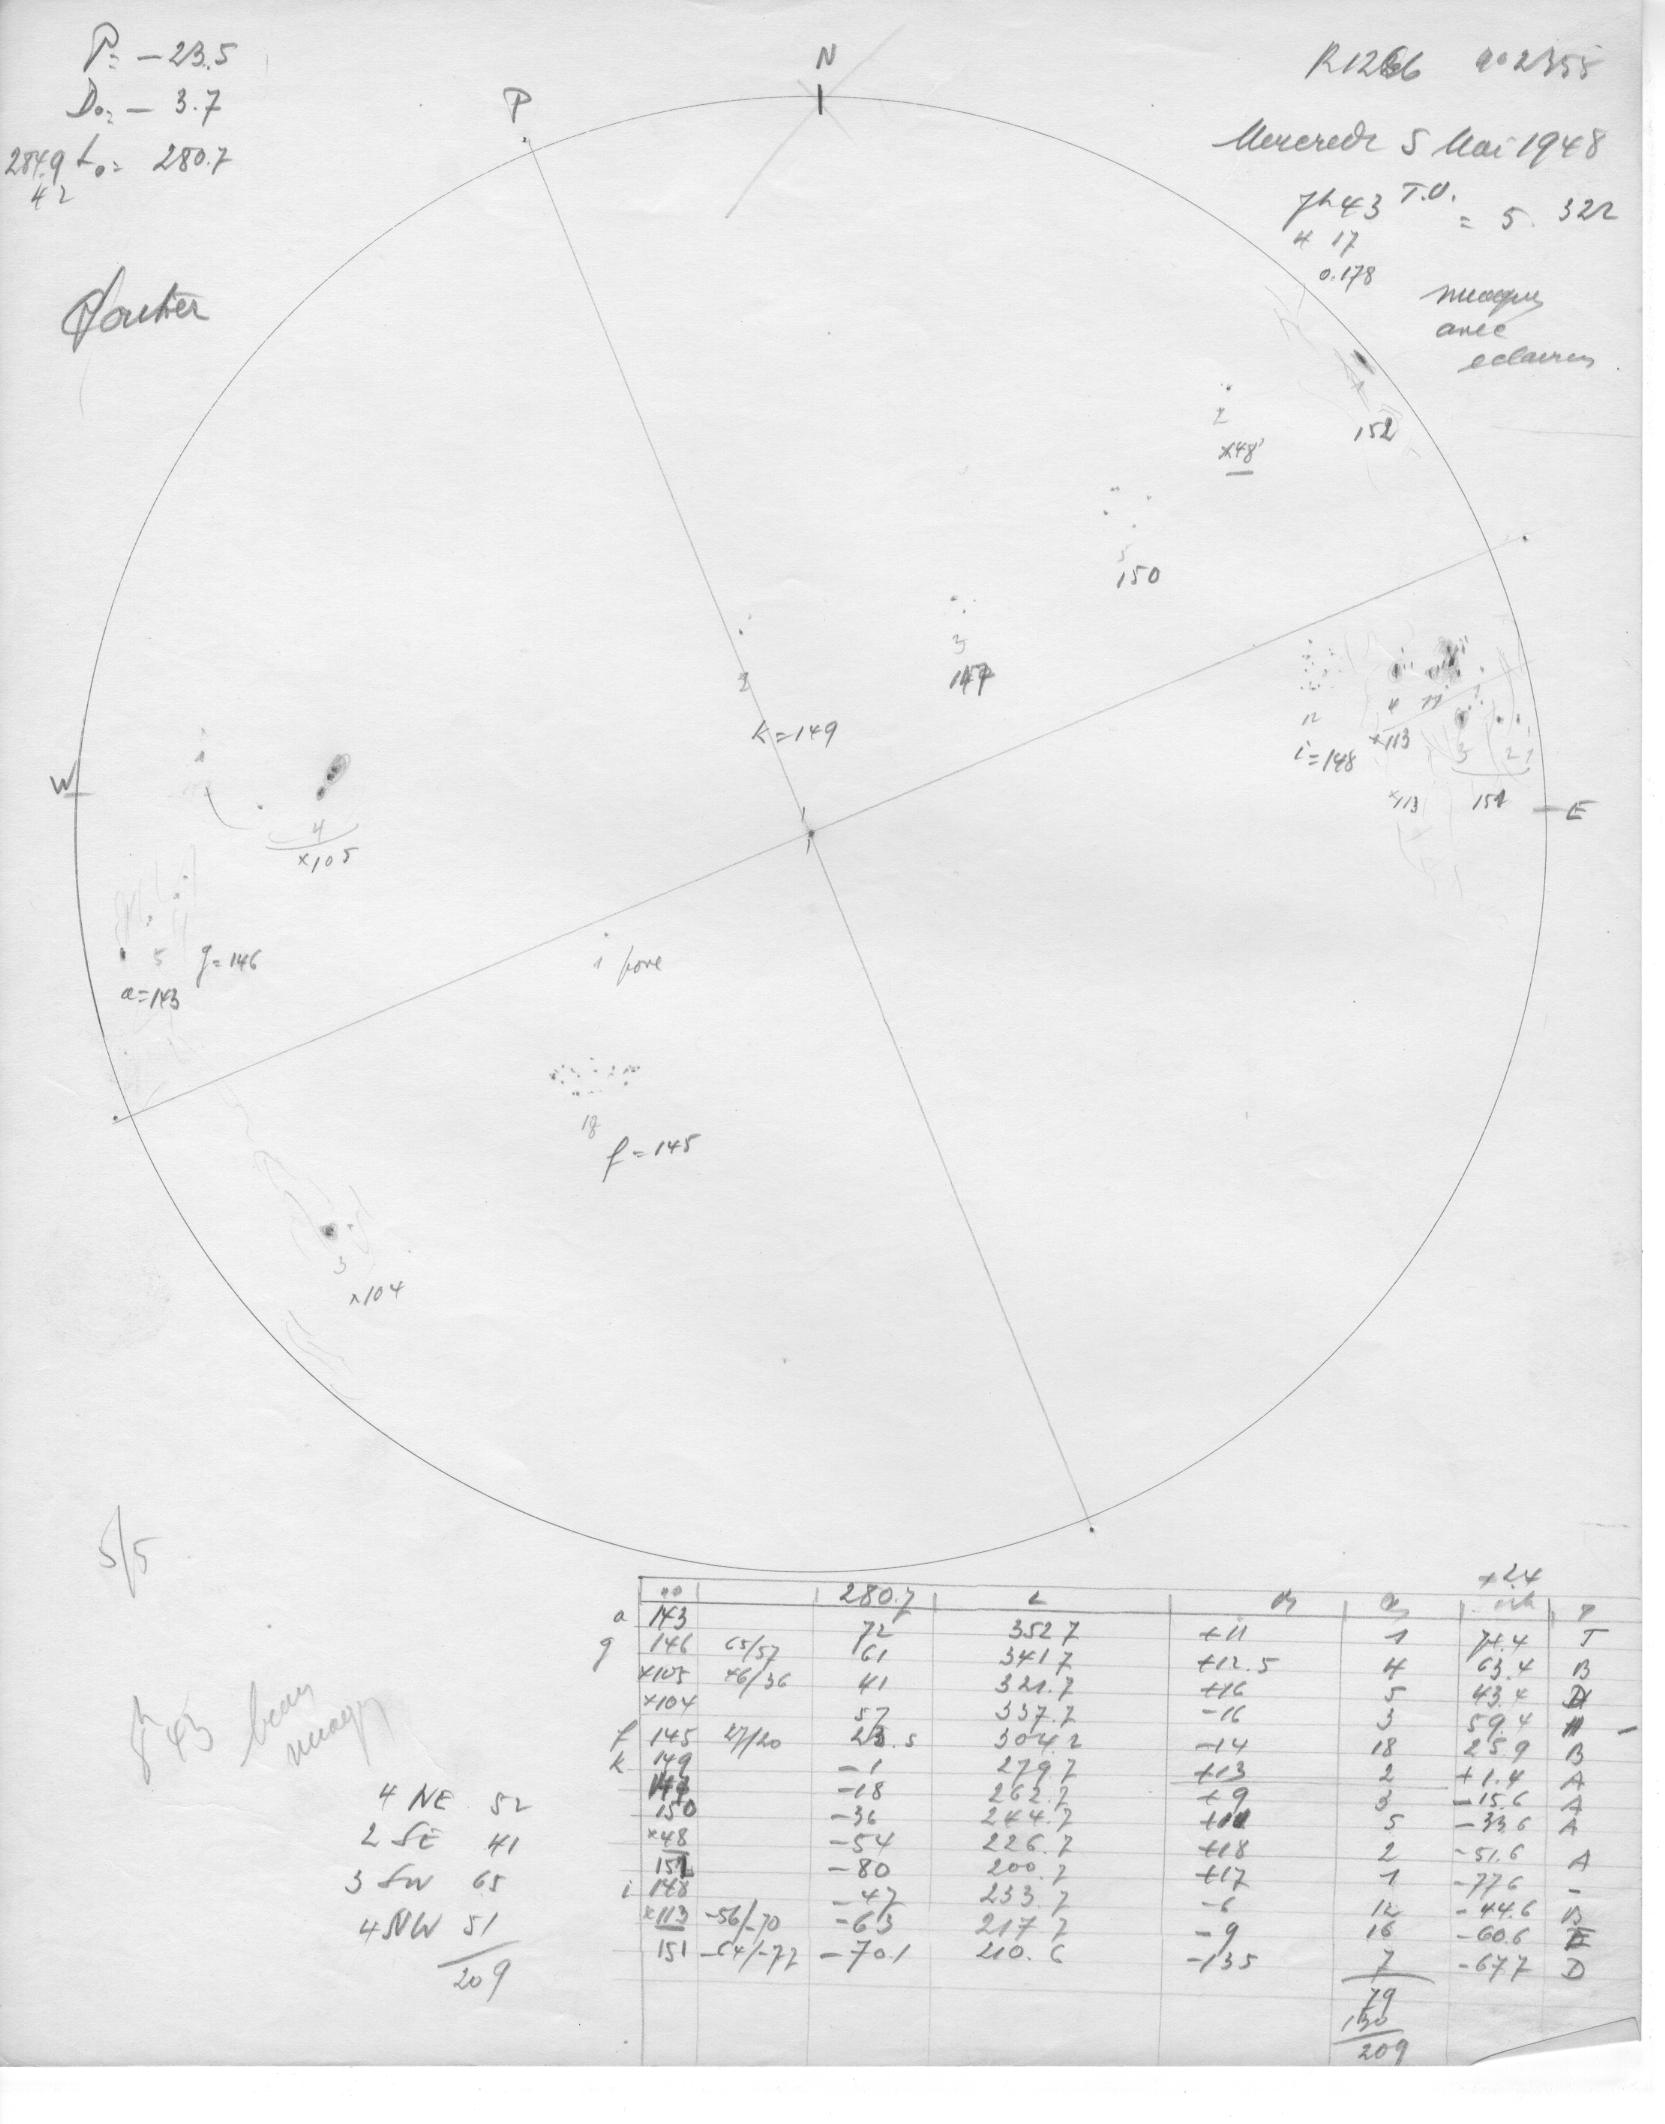 P = -23.5
Do = - 3.7
284.9 Lo = 280.7
4 2
N
P
R1266 no 2355
Mercredi 5 Mai 1948
7h43 T.U. = 5. 322
4 17
0.178
nuages
avec
eclaircies
152
2
x48
5
150
3
147
2
k=149
W
4
x105
12
i=148
4
11
x113
3
2
1
x113
151
E
1
5
g=146
a=143
1 pore
18
f=145
3
x104
5/5
no 280.7 L
+24
a 143 72 352 7 +11 1 74.4 T
g 146 65/57 61 341 7 +12.5 4 63.4 B
x105 46/36 41 321.7 +16 5 43.4 D
x104 57 337.7 -16 3 59.4 H -
f 145 27/20 23.5 304.2 -14 18 25.9 B
k 149 -1 279.7 +13 2 +1.4 A
147 -18 262.7 +9 3 -15.6 A
150 -36 244.7 5 -33.6 A
x48 -54 226.7 +18 2 -51.6 A
152 -80 200.7 +17 1 -776 -
i 148 -47 233.7 -6 12 -44.6 B
x113 -56/-70 -63 217 7 -9 16 -60.6 E
151 -64/-77 -70.1 210.6 -135 7 -677 D
79
130
209
8h43 beau
nuages
4 NE 52
2 SE 41
3 SW 65
4 NW 51
209